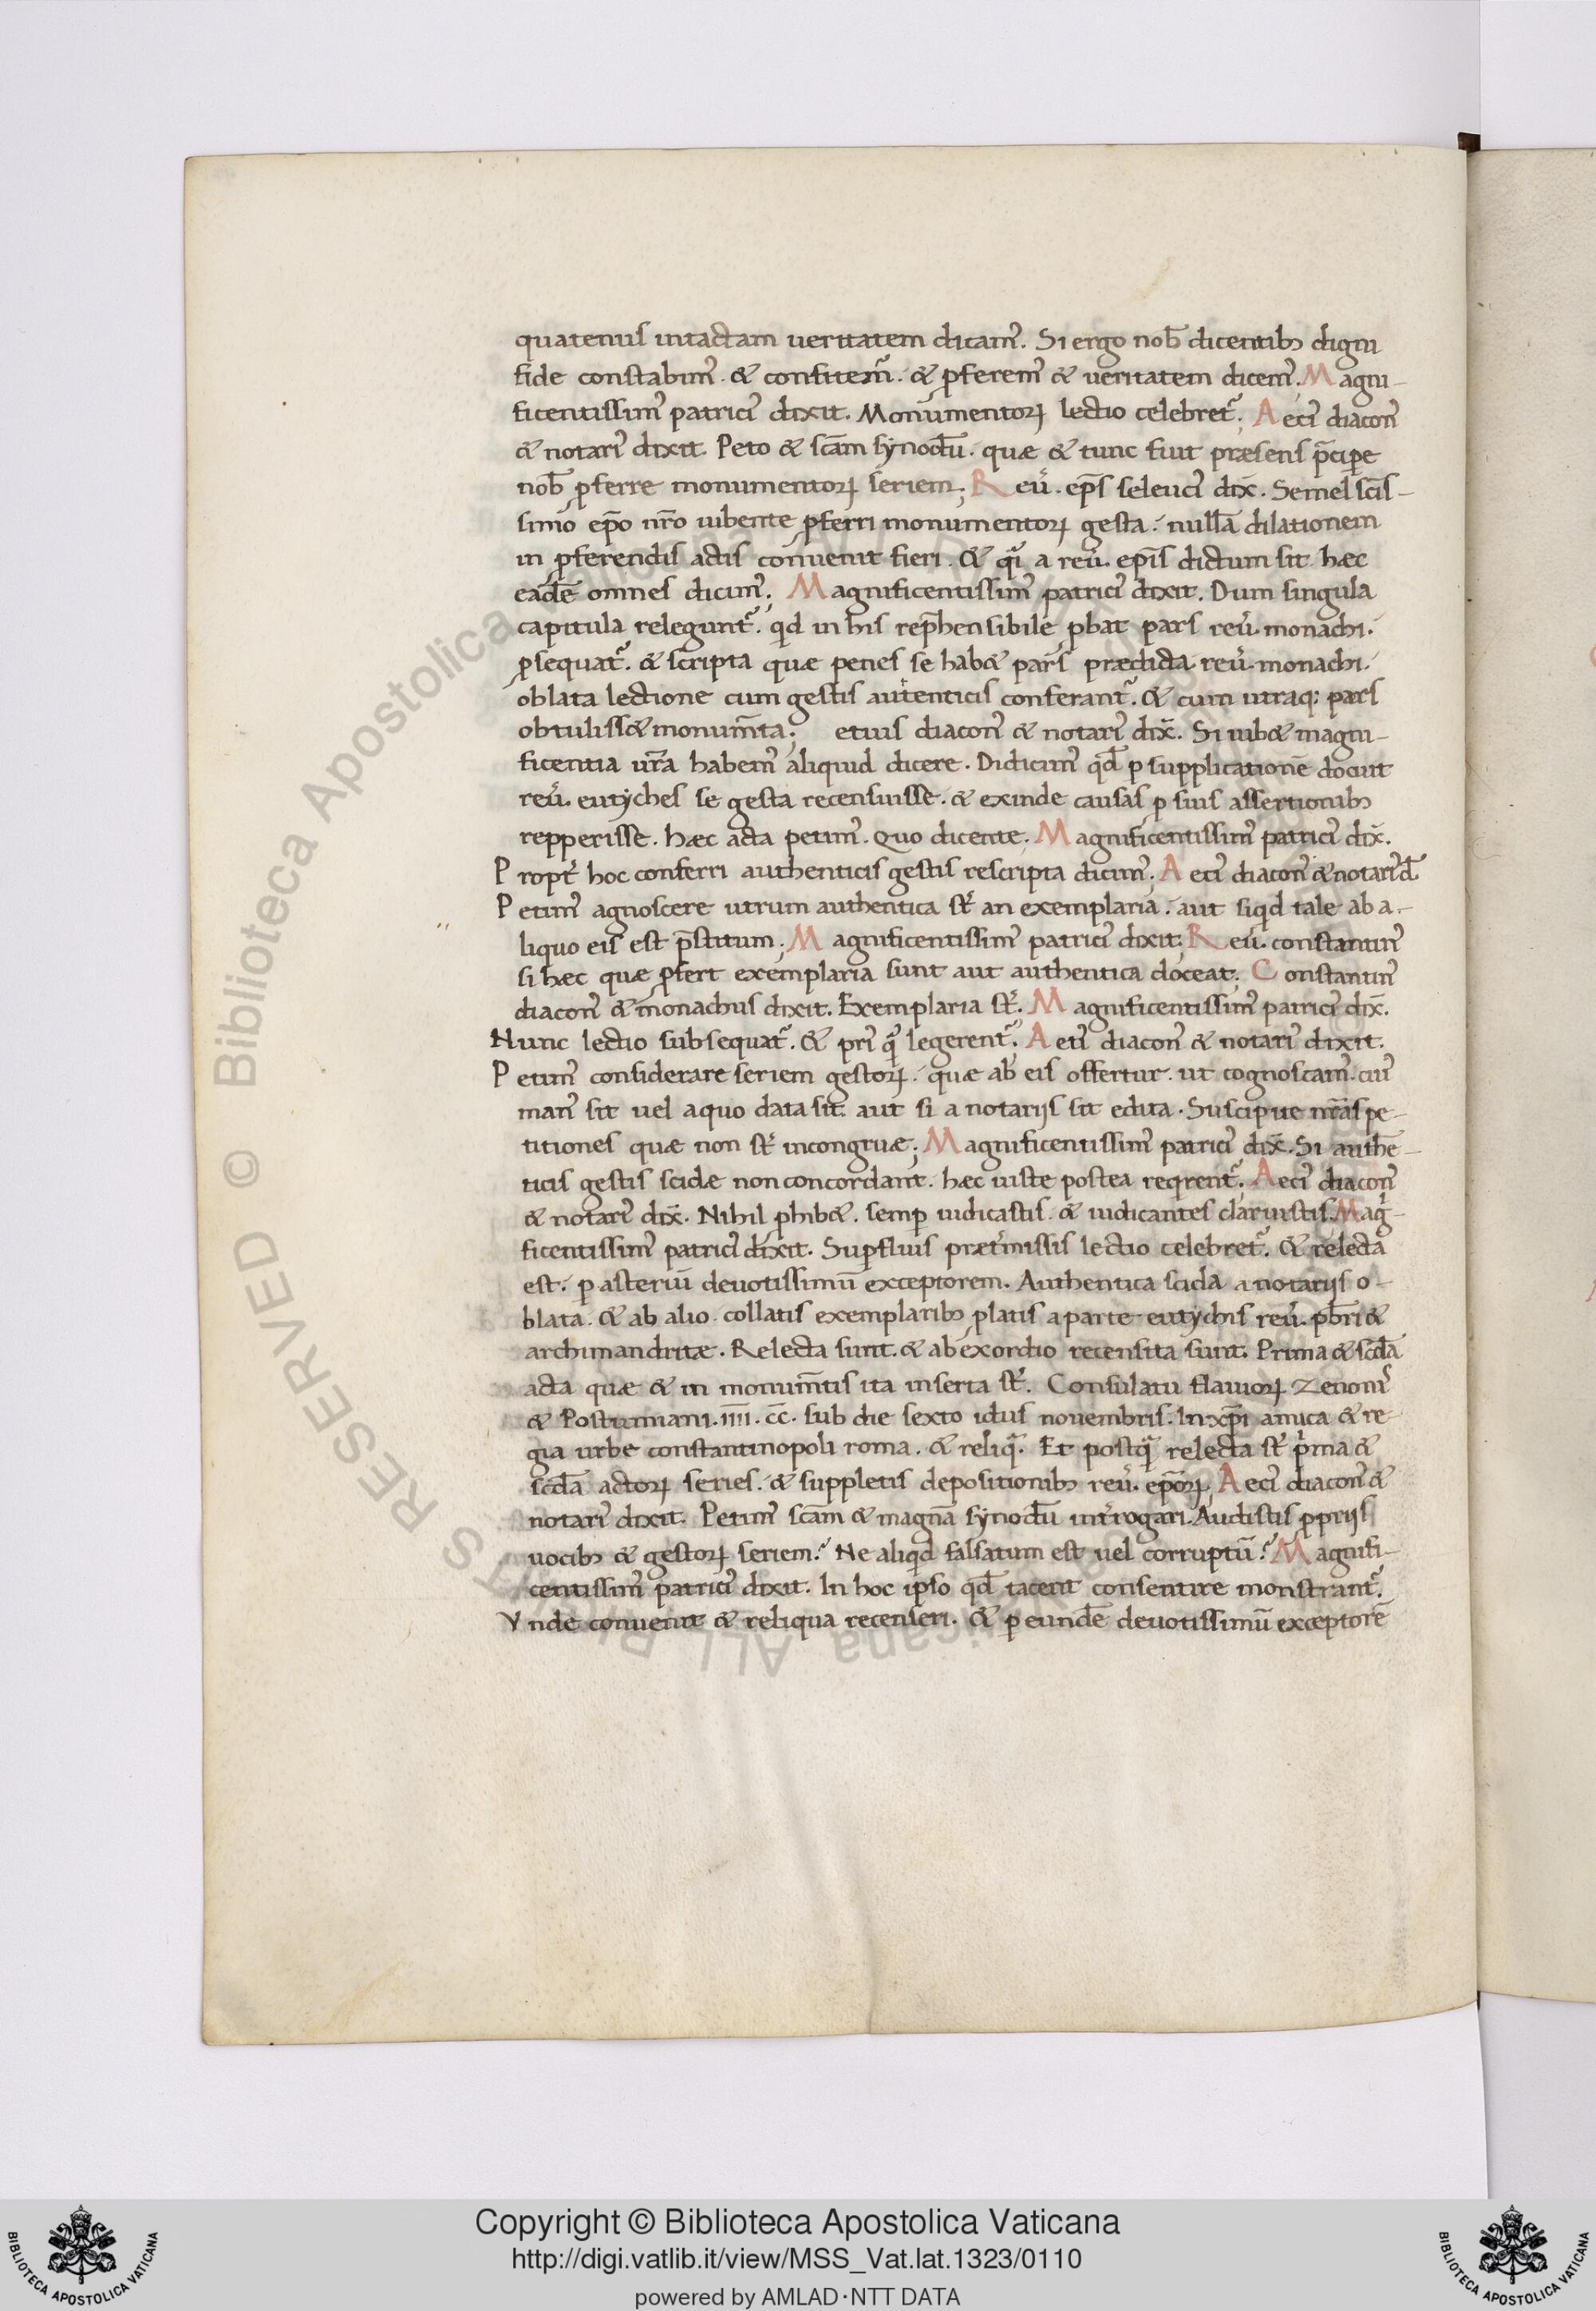 quatenus intactam ueritatem dicam᷒. Si ergo nob̅ dicentib; digni
fide constabim᷒. & confitem᷒. & ꝓferem᷒ & ueritatem dicem᷒. Magni-
ficentissim᷒ patrici᷒ dixit. Monumentoꝝ lectio celebret᷒. Aeci᷒ diacon᷒
& notari᷒ dixit. Peto & sc̅am synodu̅. quæ & tunc fuit præsens p̅cipe
nob̅ ꝓferre monumentoꝝ seriem; Reu̅. ep̅s seleuci᷒ dix̅. Semel scis-
simo ep̅o nr̅o iubente ꝓferri monumentoꝝ gesta. nulla̅ dilationem
in ꝓferendis actis conuenit fieri. & a reu̅. ep̅is dictum sit hæc
eade̅ omnes dicim᷒; Magnificentissim᷒ patrici᷒ dixit. Dum singula
capitula relegunt᷒. qd in his rep̅hensibile ꝓbat pars reu̅. monachi.
ꝓsequat᷒. & scripta quæ penes se hab& pars prædicta reu̅. monachi.
oblata lectione cum gestis autenticis conferant᷒. & cum utraq; pars
obtuliss& monum̅ta; etius diacon᷒ & notari᷒ dix̅. Si iub& magni-
ficentia ur̅a habem᷒ aliquid dicere. Didicim᷒ qd̅ ꝑ supplicatione̅ docuit
reu̅. eutyches se gesta recensuisse. & exinde causas ꝑ suis assertionib;
repperisse. hæc acta petim᷒. Quo dicente. Magnificentissim᷒ patrici᷒ dix̅.
Propt᷒ hoc conferri authenticis gestis rescripta dicim᷒; Aeci᷒ diacon᷒ & notari᷒ d̅
Petim᷒ agnoscere utrum authentica st᷒ an exemplaria. aut siqd tale ab a-
liquo eis est p̅stitum; Magnificentissim᷒ patrici᷒ dixit; Reu̅. constantin᷒
si hæc quæ ꝓfert exemplaria sunt aut authentica doceat; Constantin᷒
diacon᷒ & monachus dixit. Exemplaria st᷒. Magnificentissim᷒ patrici᷒ dix̅.
Nunc lectio subsequat᷒. & pri᷒ q̅ legerent᷒. Aeti᷒ diacon᷒ & notari᷒ dixit.
Petim᷒ considerare seriem gestoꝝ. quæ ab eis offertur. ut cognoscam᷒. cui᷒
man᷒ sit uel a quo data sit. aut si a notarijs sit edita. Suscipite nr̅as pe-
titiones quæ non st᷒ incongruæ; Magnificentissim᷒ patrici᷒ dix̅. Si authe̅-
ticis gestis scidæ non concordant. hæc iuste postea reqrent᷒. Aeci᷒ diacon᷒
& notari᷒ dix̅. Nihil ꝓhib&. semꝑ iudicastis. & iudicantes claruistis. Mag-
ficentissim᷒ patrici᷒ dixit. Suꝑfluis præt᷒missis lectio celebret᷒. & relecta
est. ꝑ asteriu̅ deuotissimu̅ exceptorem. Authentica scida a notarijs o-
blata. & ab alio. collatis exemplarib; ꝓlatis a parte eutychis reu̅. pb̅ri &
archimandritæ. Relecta sunt. & ab exordio recensita sunt. Prima & scd̅a
acta quæ & in monum̅tis ita inserta st᷒. Consulatu flauioꝝ Zenonis
& Postumiani. IIII. c̅c̅. sub die sexto idus nouembris. In xp̅i amica & re-
gia urbe constantinopoli roma. & reliq̅. Et postq̅ relecta st᷒ pma &
scd̅a actoꝝ series. & suppletis depositionib; reu̅. ep̅oꝝ, Aeci᷒ diacon᷒ &
notari᷒ dixit. Petim᷒ sc̅am & magna̅ synodu̅ int᷒rogari. Audistis ꝓprijs
uocib; & gestoꝝ seriem? Ne aliqd falsatum est uel corruptu̅? Magnifi-
centissim᷒ patrici᷒ dixit. In hoc ipso qd̅ tacent consentire monstrant᷒.
Vnde conuenit & reliqua recenseri. & ꝑ eunde̅ deuotissimu̅ exceptore̅
Copyright © Biblioteca Apostolica Vaticana
http://digi.vatlib.it/view/MSS_Vat.lat.1323/0110
powered by AMLAD·NTT DATA